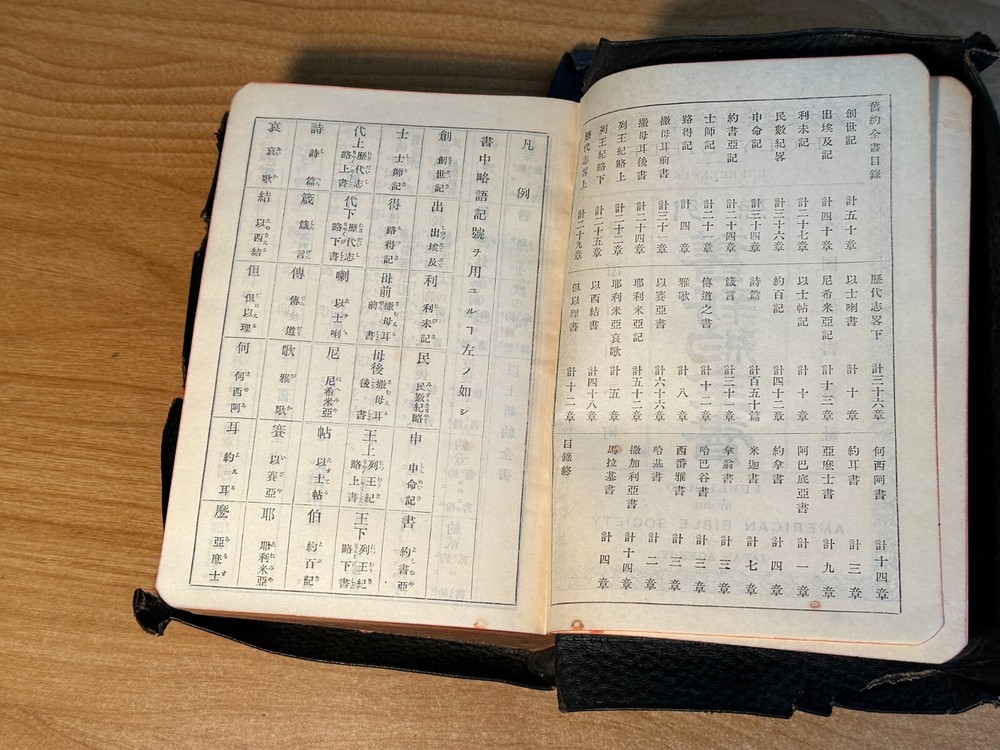 舊約全書目錄
創世記 計五十章
出埃及記 計四十章
利未記 計二十七章
民數紀畧 計三十六章
申命記 計三十四章
約書亞記 計二十四章
士師記 計二十一章
路得記 計四章
撒母耳前書 計三十一章
撒母耳後書 計二十四章
列王紀略上 計二十二章
列王紀略下 計二十五章
歷代志畧上 計二十九章
歷代志畧下 計三十六章
以士喇書 計十章
尼希米亞記 計十三章
以士帖記 計十章
約百記 計四十二章
詩篇 計百五十篇
箴言 計三十一章
傳道之書 計十二章
雅歌 計八章
以賽亞書 計六十六章
耶利米亞記 計五十二章
耶利米亞哀歌 計五章
以西結書 計四十八章
但以理書 計十二章
何西阿書 計十四章
約耳書 計三章
亞麽士書 計九章
阿巴底亞書 計一章
約拿書 計四章
米迦書 計七章
拿翁書 計三章
哈巴谷書 計三章
西番雅書 計三章
哈基書 計二章
撒加利亞書 計十四章
馬拉基書 計四章
目錄終
凡例
書中略語記號ヲ用ユルヿ左ノ如シ
創 創世記 出 出埃及 利 利未記 民 民數紀略 申 申命記 書 約書亞
士 士師記 得 路得記 母前 撒母耳前書 母後 撒母耳後書 王上 列王紀略上書 王下 列王紀略下書
代上 歷代志略上書 代下 歷代志略下書 喇 以士喇 尼 尼希米亞 帖 以士帖 伯 約百記
詩 詩篇 箴 箴言 傳 傳道 歌 雅歌 賽 以賽亞 耶 耶利米亞
哀 哀歌 結 以西結 但 但以理 何 何西阿 耳 約耳 麽 亞麽士